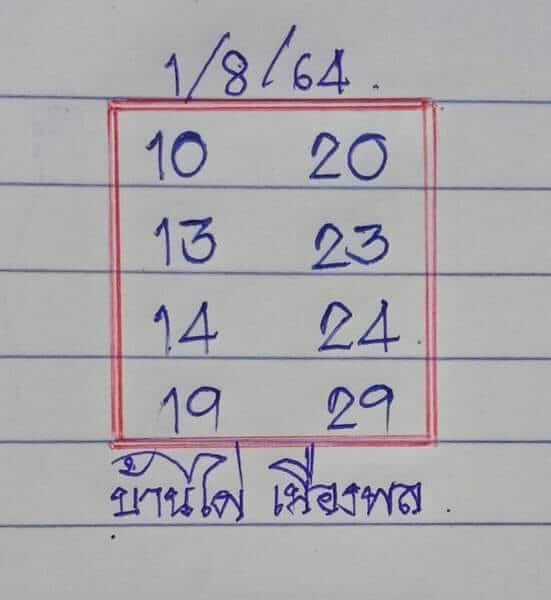 1/8/64.
10 20
13 23
14 24
19 29
บ้านไผ่ เมืองพล.